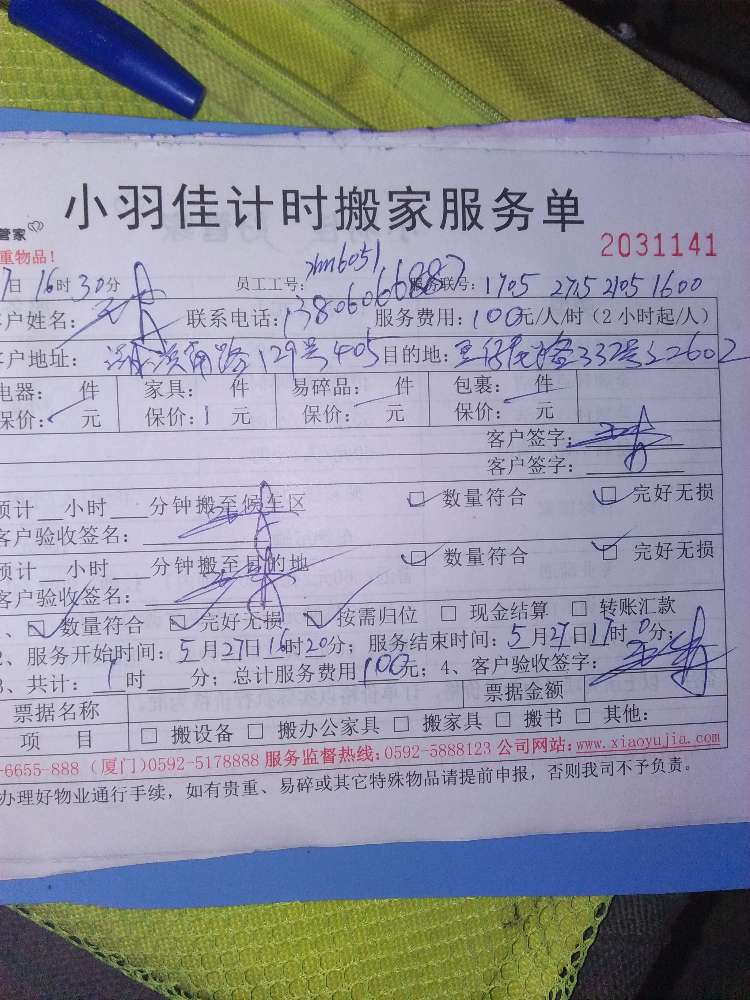 小羽佳计时搬家服务单
管家
重物品！
2031141
7日16时30分 员工工号： 服务联号：1705 2715 2105 1600
户姓名： 联系电话：13806066887 服务费用：100元/人/时（2小时起/人）
户地址： 129号405 目的地： 332号 2602
电器： 件 家具： 件 易碎品： 件 包裹： 件
保价： 元 保价： 元 保价： 元 保价： 元
客户签字：
客户签字：
预计 小时 分钟搬至候车区 ☑ 数量符合 ☑ 完好无损
客户验收签名：
预计 小时 分钟搬至目的地 ☑ 数量符合 ☑ 完好无损
客户验收签名：
、☑ 数量符合 ☑ 完好无损 ☑ 按需归位 □ 现金结算 □ 转账汇款
2、服务开始时间：5月27日16时20分；服务结束时间：5月27日17时0分；
3、共计：1时 分；总计服务费用100元；4、客户验收签字：
票据名称 票据金额
项 目 □ 搬设备 □ 搬办公家具 □ 搬家具 □ 搬书 □ 其他：
-6655-888（厦门）0592-5178888 服务监督热线：0592-5888123 公司网站：www.xiaoyujia.com
办理好物业通行手续，如有贵重、易碎或其它特殊物品请提前申报，否则我司不予负责。